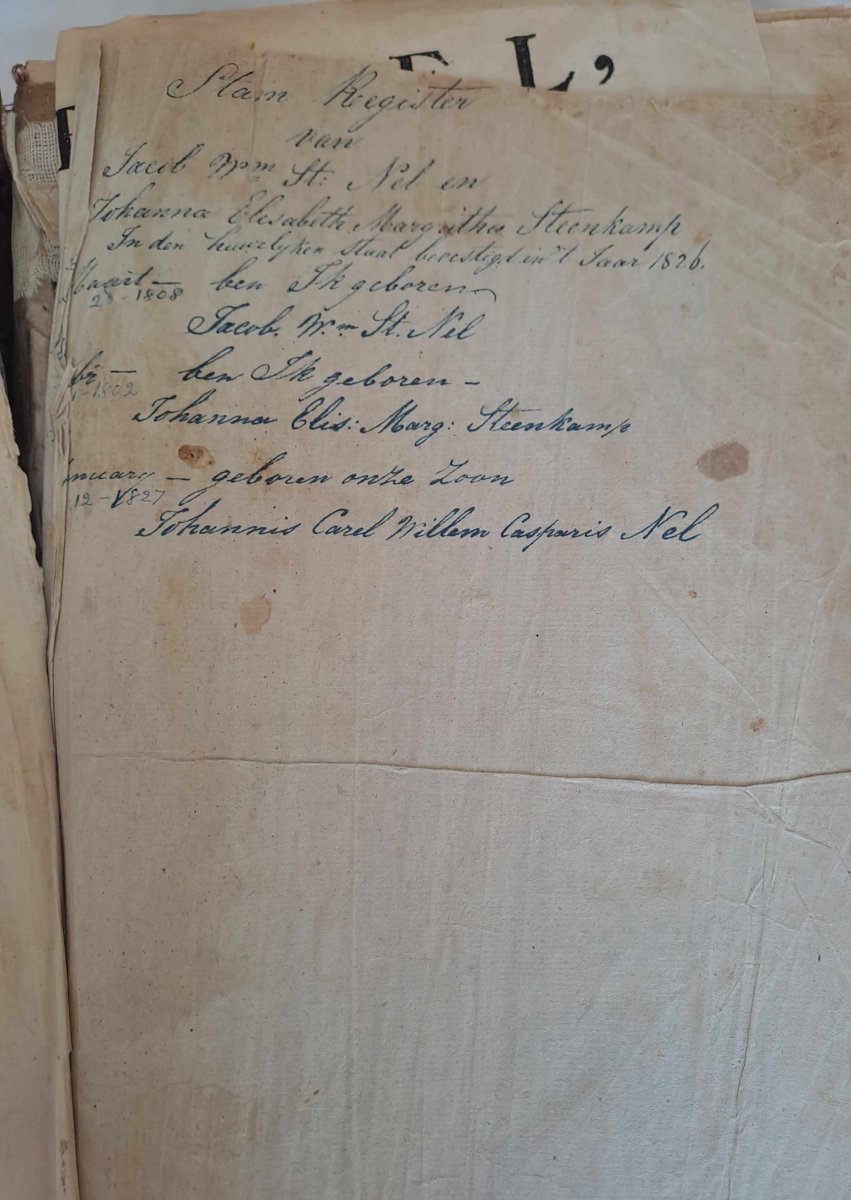 EL,
Stam Register
van
Jacob Wm St: Nel en
Johanna Elisabeth Margritha Steenkamp
In den huwelyken staat bevestigd in't Jaar 1826.
Maart — ben Ik geboren
2 - 1808
Jacob. Wm St. Nel
br — ben Ik geboren —
1802
Johanna Elis: Marg: Steenkamp
nuary — geboren onze Zoon
12 - 1827
Johannis Carel Willem Casparis Nel